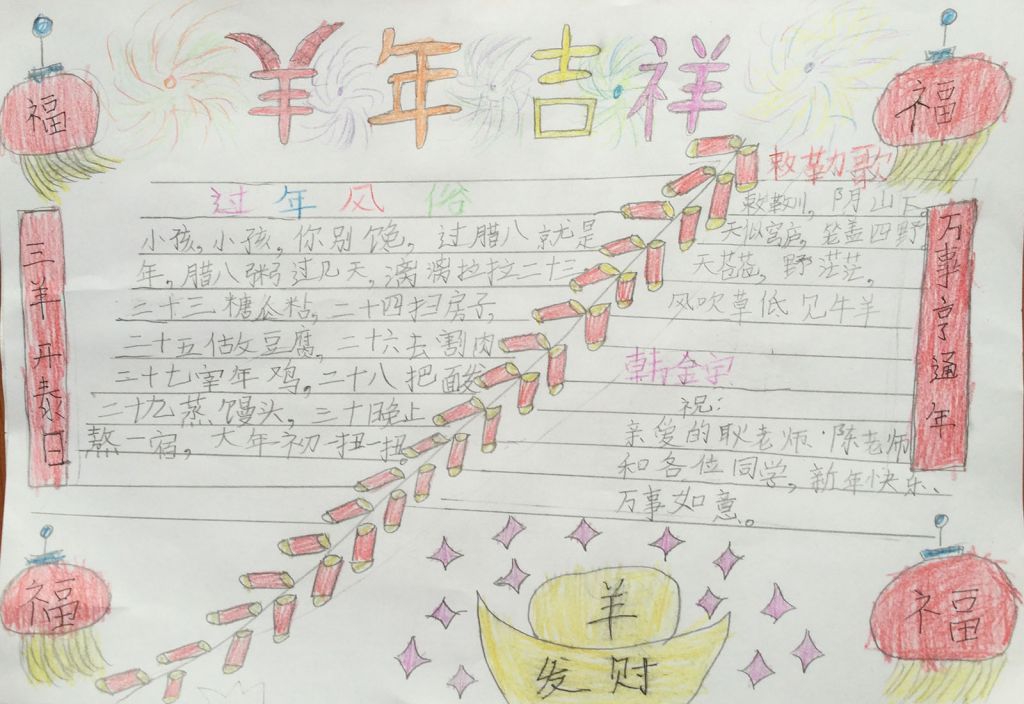 羊年吉祥
福
福
过年风俗
小孩,小孩,你别馋,过腊八就是
年,腊八粥过几天,漓漓拉拉二十三,
二十三糖仒粘,二十四扫房子,
二十五估攵豆腐,二十六去割肉
二十七宰年鸡,二十八把面发
二十九蒸馒头,三十晚上
熬一宿,大年初一扭一扭。
敕勒歌
敕勒川,阴山下
天似宫庐,笼盖四野
天苍苍,野茫茫,
风吹草低见牛羊
韩金宇
祝:
亲爱的耿老师·陈老师
和各位同学,新年快乐、
万事如意。
三羊开泰日
万事亨通年
福
福
羊
发财